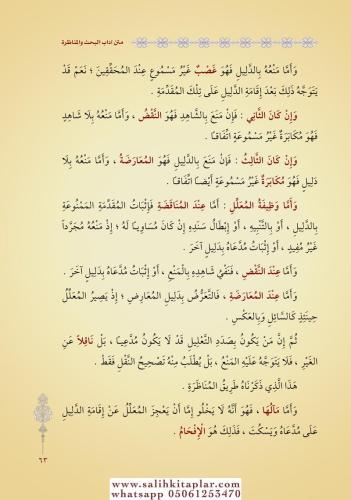 متن آداب البحث والمناظرة
وَأَمَّا مَنْعُهُ بِالدَّلِيلِ فَهُوَ غَصْبٌ غَيْرُ مَسْمُوعٍ عِنْدَ الْمُحَقِّقِينَ ؛ نَعَمْ قَدْ
يَتَوَجَّهُ ذٰلِكَ بَعْدَ إِقَامَةِ الدَّلِيلِ عَلَى تِلْكَ الْمُقَدِّمَةِ .
وَإِنْ كَانَ الثَّانِي : فَإِنْ مَنَعَ بِالشَّاهِدِ فَهُوَ النَّقْضُ ، وَأَمَّا مَنْعُهُ بِلَا شَاهِدٍ
فَهُوَ مُكَابَرَةٌ غَيْرُ مَسْمُوعَةٍ اتِّفَاقًا .
وَإِنْ كَانَ الثَّالِثُ : فَإِنْ مَنَعَ بِالدَّلِيلِ فَهُوَ الْمُعَارَضَةُ ، وَأَمَّا مَنْعُهُ بِلَا
دَلِيلٍ فَهُوَ مُكَابَرَةٌ غَيْرُ مَسْمُوعَةٍ أَيْضًا اتِّفَاقًا .
وَأَمَّا وَظِيفَةُ الْمُعَلِّلِ : أَمَّا عِنْدَ الْمُنَاقَضَةِ فَإِثْبَاتُ الْمُقَدِّمَةِ الْمَمْنُوعَةِ
بِالدَّلِيلِ ، أَوْ بِالتَّنْبِيهِ ، أَوْ إِبْطَالُ سَنَدِهِ إِنْ كَانَ مُسَاوِيًا لَهُ ؛ إِذْ مَنْعُهُ مُجَرَّدًا
غَيْرُ مُفِيدٍ ، أَوْ إِثْبَاتُ مُدَّعَاهُ بِدَلِيلٍ آخَرَ .
وَأَمَّا عِنْدَ النَّقْضِ ، فَنَفْيُ شَاهِدِهِ بِالْمَنْعِ ، أَوْ إِثْبَاتُ مُدَّعَاهُ بِدَلِيلٍ آخَرَ .
وَأَمَّا عِنْدَ الْمُعَارَضَةِ ، فَالتَّعَرُّضُ بِدَلِيلِ الْمُعَارِضِ ؛ إِذْ يَصِيرُ الْمُعَلِّلُ
حِينَئِذٍ كَالسَّائِلِ وَبِالْعَكْسِ .
ثُمَّ إِنَّ مَنْ يَكُونُ بِصَدَدِ التَّعْلِيلِ قَدْ لَا يَكُونُ مُدَّعِيًا ، بَلْ نَاقِلًا عَنِ
الْغَيْرِ ، فَلَا يَتَوَجَّهُ عَلَيْهِ الْمَنْعُ ، بَلْ يُطْلَبُ مِنْهُ تَصْحِيحُ النَّقْلِ فَقَطْ .
هٰذَا الَّذِي ذَكَرْنَاهُ طَرِيقُ الْمُنَاظَرَةِ .
وَأَمَّا مَآلُهَا ، فَهُوَ أَنَّهُ لَا يَخْلُو إِمَّا أَنْ يَعْجِزَ الْمُعَلِّلُ عَنْ إِقَامَةِ الدَّلِيلِ
عَلَى مُدَّعَاهُ وَيَسْكُتَ ، فَذٰلِكَ هُوَ الْإِفْحَامُ .
٦٣
www.salihkitaplar.com
whatsapp 05061253470